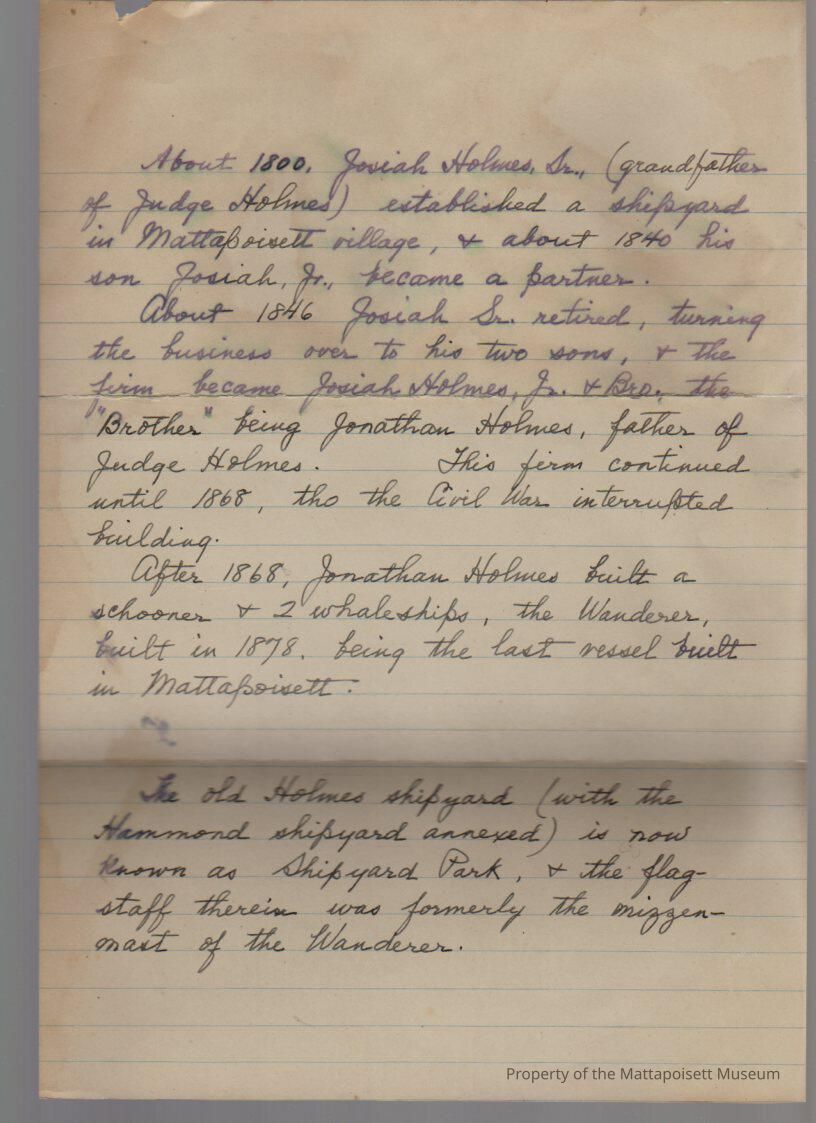 About 1800, Josiah Holmes, Sr., (grandfather
of Judge Holmes) established a shipyard
in Mattapoisett village, & about 1840 his
son Josiah, Jr., became a partner.
About 1846 Josiah Sr. retired, turning
the business over to his two sons, & the
firm became Josiah Holmes, Jr. & Bro., the
"Brother" being Jonathan Holmes, father of
Judge Holmes. This firm continued
until 1868, tho the Civil War interrupted
building.
After 1868, Jonathan Holmes built a
schooner & 2 whaleships, the Wanderer,
built in 1878, being the last vessel built
in Mattapoisett.
The old Holmes shipyard (with the
Hammond shipyard annexed) is now
known as Shipyard Park, & the flag-
staff therein was formerly the mizzen-
mast of the Wanderer.
Property of the Mattapoisett Museum